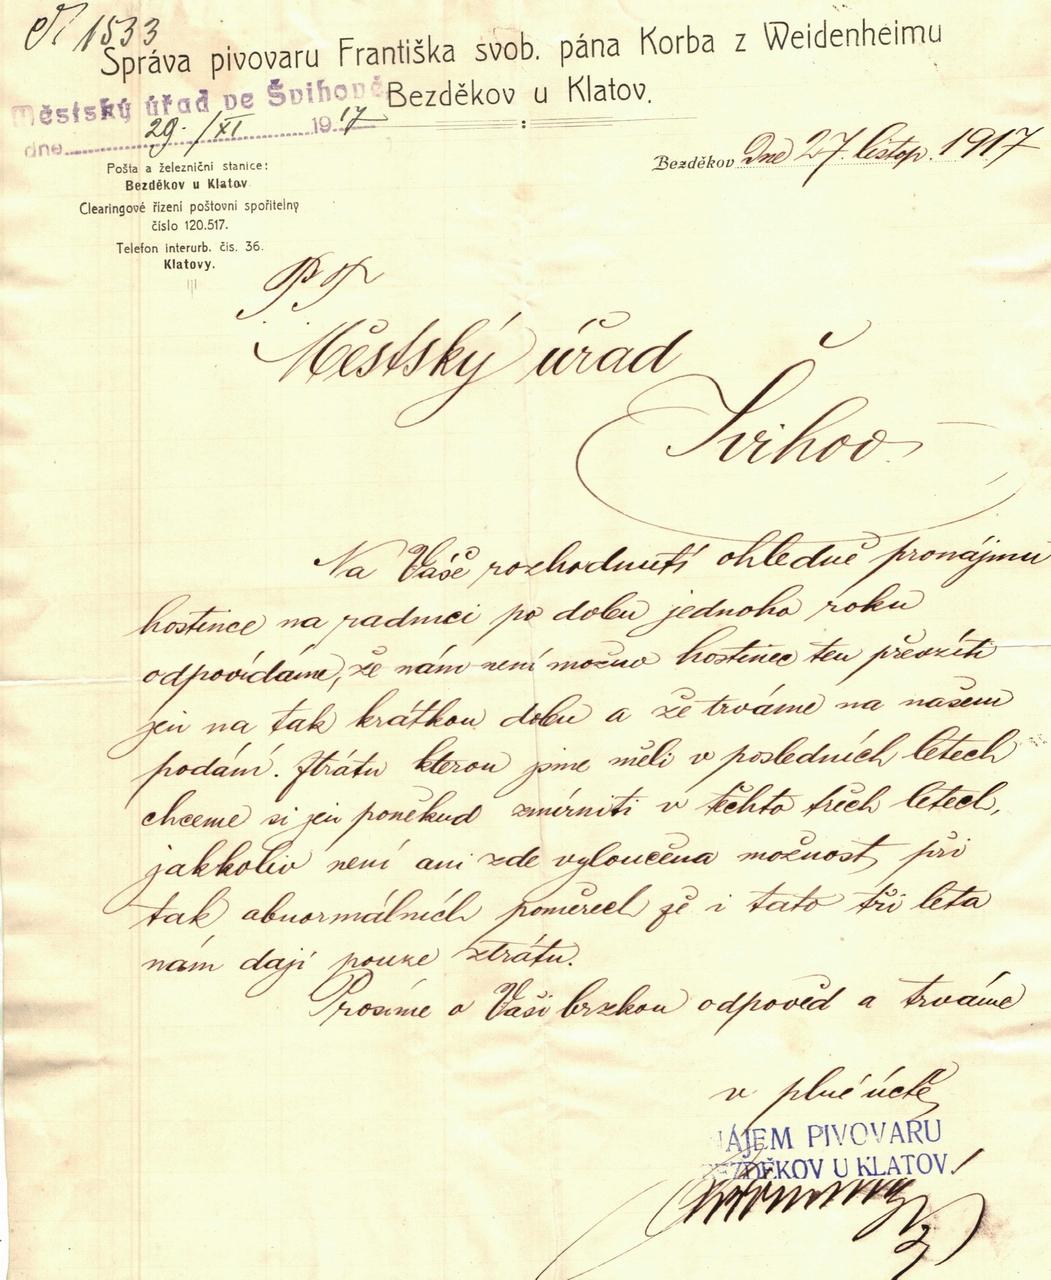 1533
Správa pivovaru Františka svob. pána Korba z Weidenheimu
Bezděkov u Klatov.
Městský úřad ve Švihově
dne 29./XI 1917
Bezděkov dne 27. listop. 1917
Pošta a železniční stanice:
Bezděkov u Klatov
Clearingové řízení poštovní spořitelny
číslo 120.517.
Telefon interurb. čís. 36.
Klatovy.
P T
Městský úřad
Švihov
Na Váše rozhodnutí ohledně pronájmu
hostince na radnici po dobu jednoho roku
odpovídáme, že nám není možno hostinec ten převzíti
jen na tak krátkou dobu a že trváme na našem
podání. Ztrátu kterou jsme měli v posledních letech
chceme si jen poněkud zmírniti v těchto třech letech,
jakkoliv není ani zde vyloučena možnost, při
tak abnormálních poměrech že i tato tři leta
nám dají pouze ztrátu.
Prosíme o Vaši brzkou odpověd a trváme
v plné úctě
NÁJEM PIVOVARU
BEZDĚKOV U KLATOV!